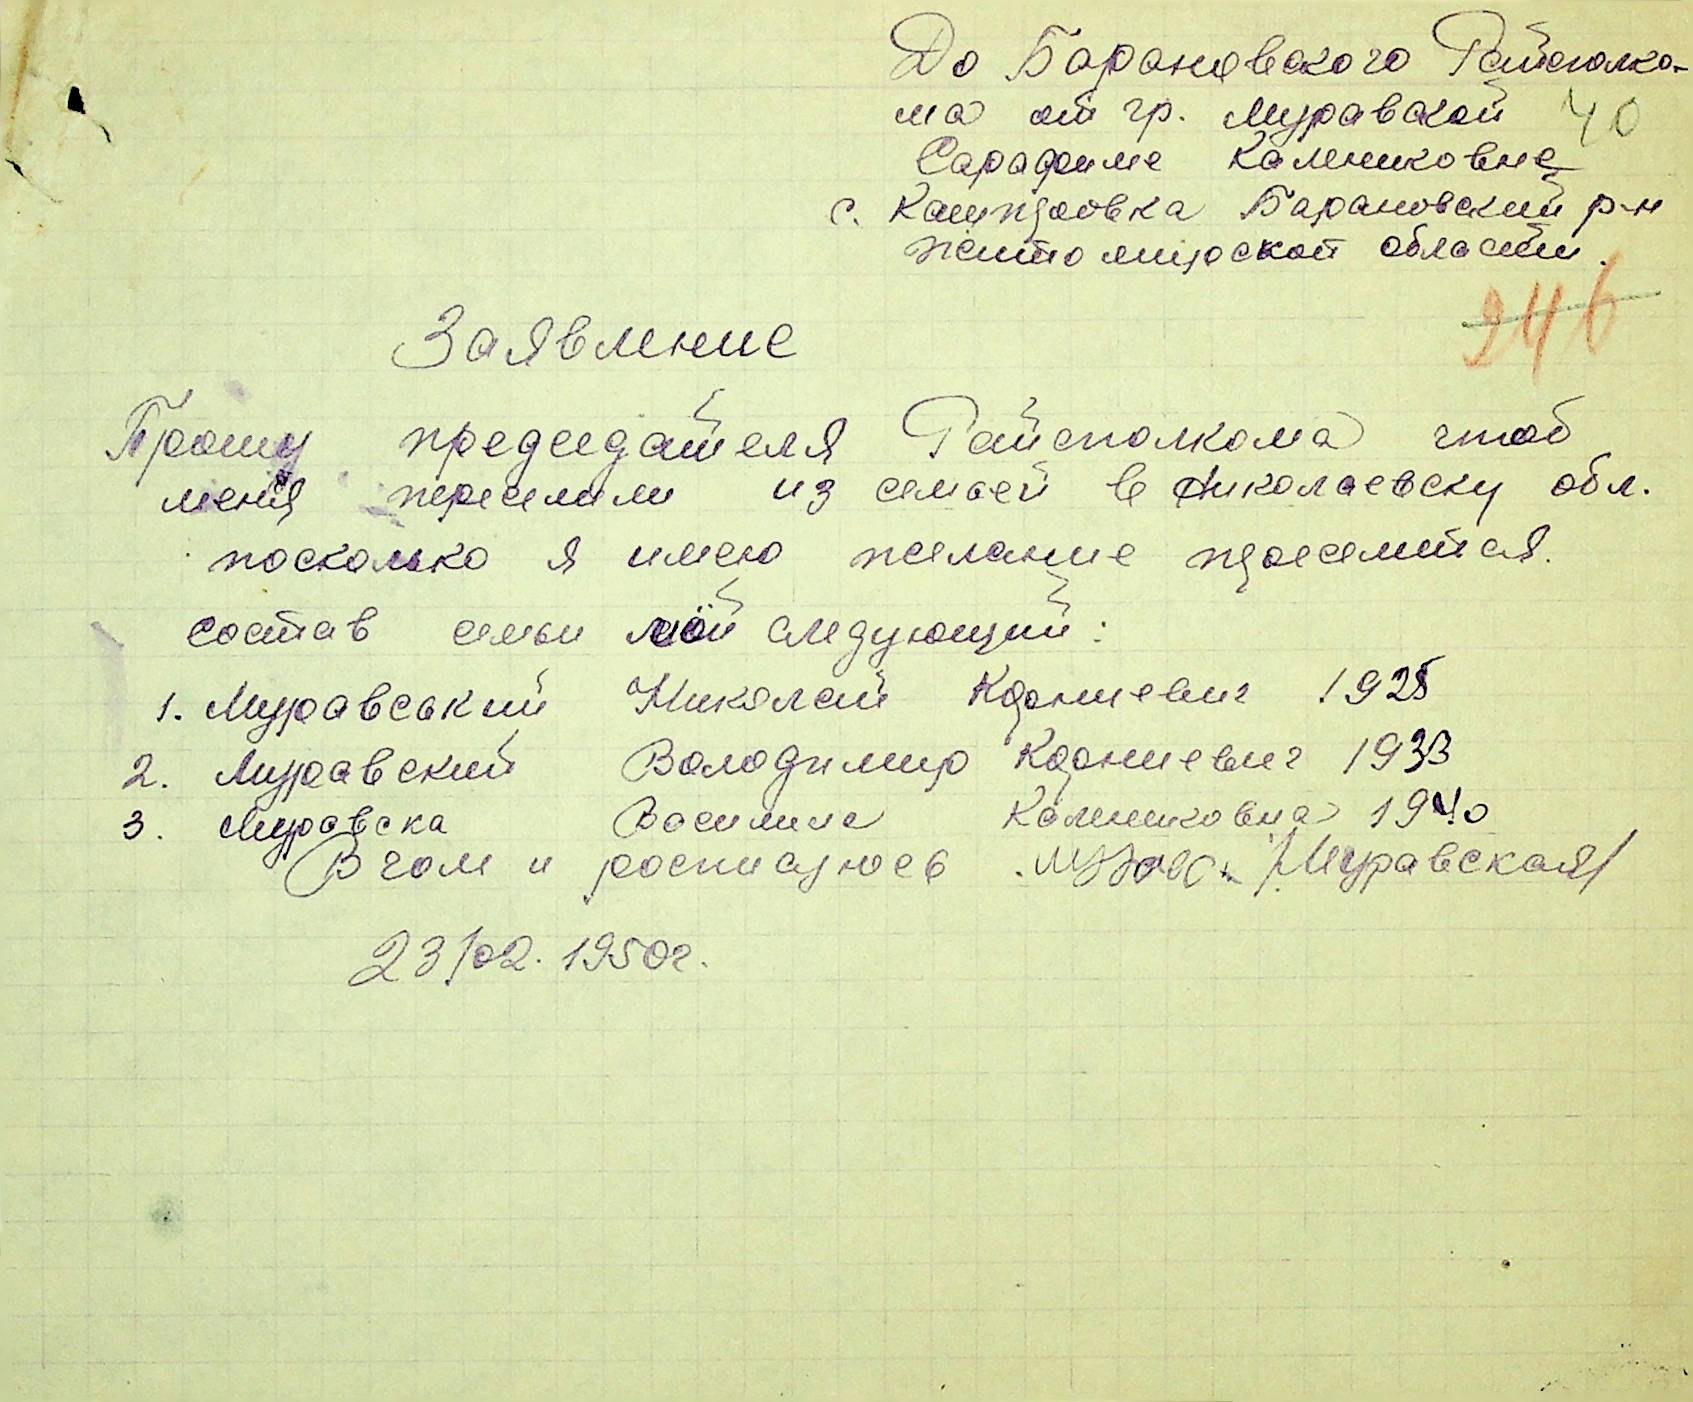 До Барановского Райсполко-
ма от гр. Муравской 40
Сарафиме Калениковне
с. Кашперовка Барановский р-н
Житомирской области.
246
Заявление
Прошу председателя Райсполкома чтоб
меня переселили из семьей в Николаевску обл.
поскольку я имею желание преселится.
состав семьи мой следующий:
1. Муравський Николай Корниевич 1925
2. Муравский Володимир Корниевич 1933
3. Муравска Калениковна 1940
В чом и росписуюсь /Муравская/
23/02. 1950г.